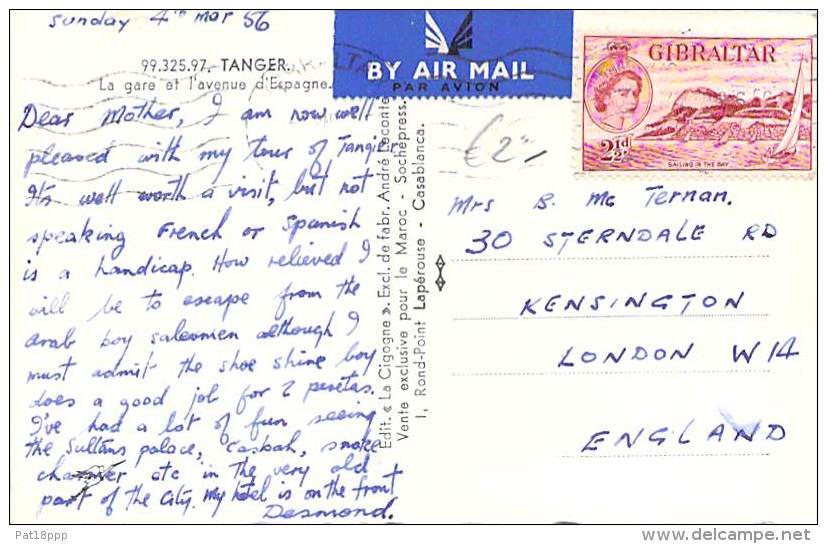 Sunday 4th Mar 56
99.325.97. TANGER.
La gare et l'avenue d'Espagne.
Dear Mother, I am now well
pleased with my tour of Tangier.
Its well worth a visit, but not
speaking French or Spanish
is a handicap. How relieved I
will be to escape from the
arab boy salesmen although I
must admit the shoe shine boy
does a good job for 2 pesetas.
I've had a lot of fun seeing
the Sultans palace, Casbah, snake
charmer etc in the very old
part of the City. My hotel is on the front
Desmond.
Edit. « La Cigogne ». Excl. de fabr. André Leconte
Vente exclusive pour le Maroc - Sochepress.
1, Rond-Point Lapérouse - Casablanca.
BY AIR MAIL
PAR AVION
GIBRALTAR
2½d
SAILING IN THE BAY
Mrs B. Mc Ternan.
30 STERNDALE RD
KENSINGTON
LONDON W14
ENGLAND
Pat18ppp
delcampe.net